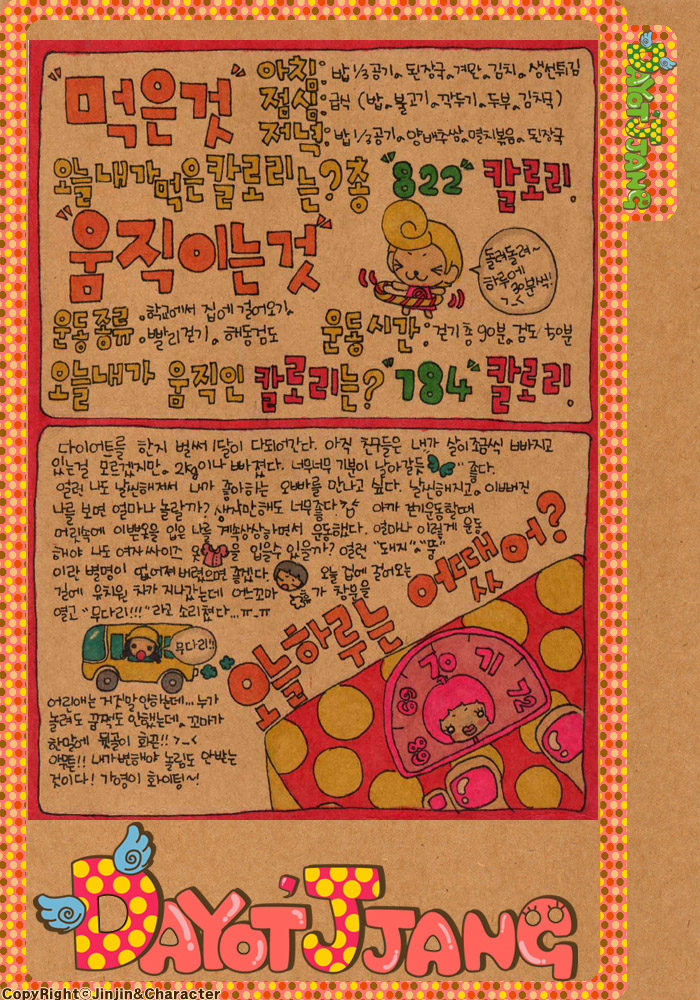 "먹은것"
아침: 밥 1/3공기. 된장국. 계란. 김치. 생선튀김
점심: 급식 (밥. 불고기. 깍두기. 두부. 김치국)
저녁: 밥 1/3공기. 양배추쌈. 멸치볶음. 된장국
오늘 내가 먹은 칼로리는? 총 "822" 칼로리.
"움직이는것"
돌려돌려~
하루에
30분씩!
운동종류. 학교에서 집에 걸어오기.
빨리걷기. 해동검도
운동시간: 걷기 총 90분. 검도 50분
오늘 내가 움직인 칼로리는? "784" 칼로리.
다이어트를 한지 벌써 1달이 다되어간다. 아직 친구들은 내가 살이 조금씩 빠지고
있는걸 모르겠지만. 2kg이나 빠졌다. 너무너무 기분이 날아갈듯 좋다.
얼런 나도 날씬해져서 내가 좋아하는 오빠를 만나고 싶다. 날씬해지고. 이뻐진
나를 보면 얼마나 놀랄까? 생각만해도 너무좋다 아까 걷기운동할때
머릿속에 이쁜옷을 입은 나를 계속상상하면서 운동했다. 얼마나 이렇게 운동
해야 나도 여자싸이즈 옷을 입을수 있을까? 얼런 "돼지" "뚱"
이란 별명이 없어져 버렸으면 좋겠다. 오늘 집에 걸어오는
길에 유치원 차가 지나갔는데 어느꼬마가 창문을
열고 "무다리!!!" 라고 소리쳤다...ㅠ-ㅠ
무다리!!
오늘하루는 어땠어?
어린애는 거짓말 안하는데... 누가
놀려도 꿈쩍도 안했는데. 꼬마가
한말에 얼굴이 화끈!! >_<
아뭏튼!! 내가변해야 놀림도 안받는
것이다! 가영이 화이팅~!
68 69 70 71 72
DAYOT'JJANG
DAYOT'JJANG
CopyRight©Jinjin&Character